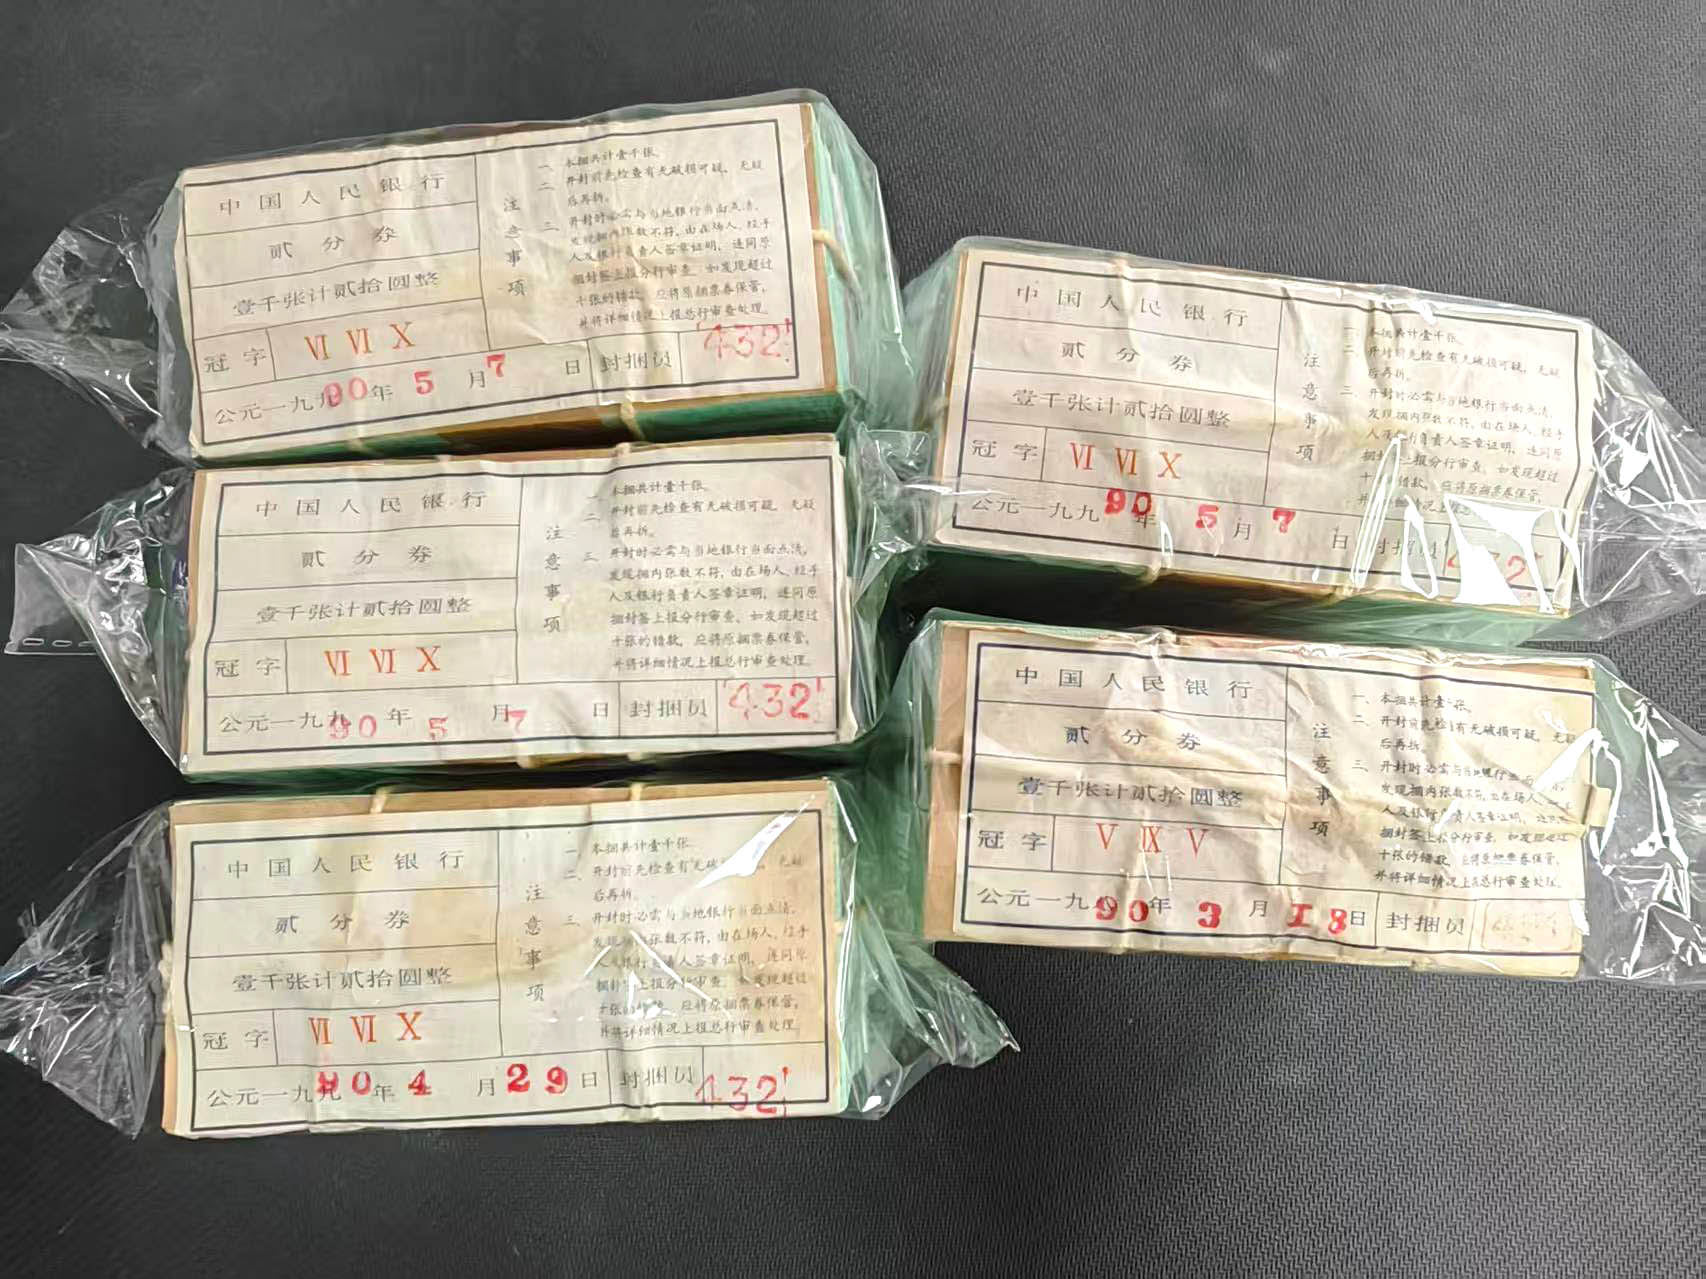 中国人民银行
贰分券
壹千张计贰拾圆整
冠字 Ⅵ Ⅵ Ⅹ
公元一九九90年5月7日 封捆员 432
注意事项
一、本捆共计壹千张。
二、开封前先检查有无破损可疑，无疑
后再拆。
三、开封时必需与当地银行当面点清，
发现捆内张数不符，由在场人、经手
人及银行负责人签章证明，连同原
捆封签上报分行审查。如发现超过
十张的错款，应将原捆票券保管，
并将详细情况上报总行审查处理。
中国人民银行
贰分券
壹千张计贰拾圆整
冠字 Ⅵ Ⅵ Ⅹ
公元一九九90年5月7日 封捆员 432
注意事项
一、本捆共计壹千张。
二、开封前先检查有无破损可疑，无疑
后再拆。
三、开封时必需与当地银行当面点清，
发现捆内张数不符，由在场人、经手
人及银行负责人签章证明，连同原
捆封签上报分行审查。如发现超过
十张的错款，应将原捆票券保管，
并将详细情况上报总行审查处理。
中国人民银行
贰分券
壹千张计贰拾圆整
冠字 Ⅵ Ⅵ Ⅹ
公元一九九90年4月29日 封捆员 432
注意事项
一、本捆共计壹千张。
二、开封前先检查有无破 无疑
后再拆。
三、开封时必需与当地银行当面点清，
发现 张数不符，由在场人、经手
人及银行负责人签章证明，连同原
捆封签上报分行审查。如发现超过
十张的错款，应将原捆票券保管，
并将详细情况上报总行审查处理。
中国人民银行
贰分券
壹千张计贰拾圆整
冠字 Ⅵ Ⅵ Ⅹ
公元一九九90年5月7日 封捆员 432
注意事项
一、本捆共计壹千张。
二、开封前先检查有无破损可疑，无疑
后再拆。
三、开封时必需与当地银行当面点清，
发现捆内张数不符，由在场人、经手
人及银行负责人签章证明，连同原
捆封签上报分行审查。如发现超过
十 错款，应将原捆票券保管，
并将详细情况上报
中国人民银行
贰分券
壹千张计贰拾圆整
冠字 Ⅴ Ⅸ Ⅴ
公元一九八90年3月18日 封捆员
注意事项
一、本捆共计壹千张。
二、开封前先检 有无破损可疑，无疑
后再拆。
三、开封时必需与当地银行当面
发现捆内张数不符，由在场人、
人及银行负责人签章证明，
捆封签上报分行审查。如发现超过
十张的错款，应将原捆票券保管，
并将详细情况上报总行审查处理。